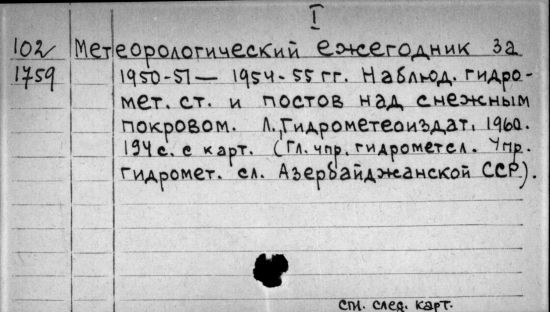 I
102 Метеорологический ежегодник за
1759 1950-51 — 1954-55 гг. Наблюд. гидро-
мет. ст. и постов над снежным
покровом. Л., Гидрометеоиздат, 1960.
194 с. с карт. (Гл. упр. гидрометсл. Упр.
гидромет. сл. Азербайджанской ССР).
см. след. карт.